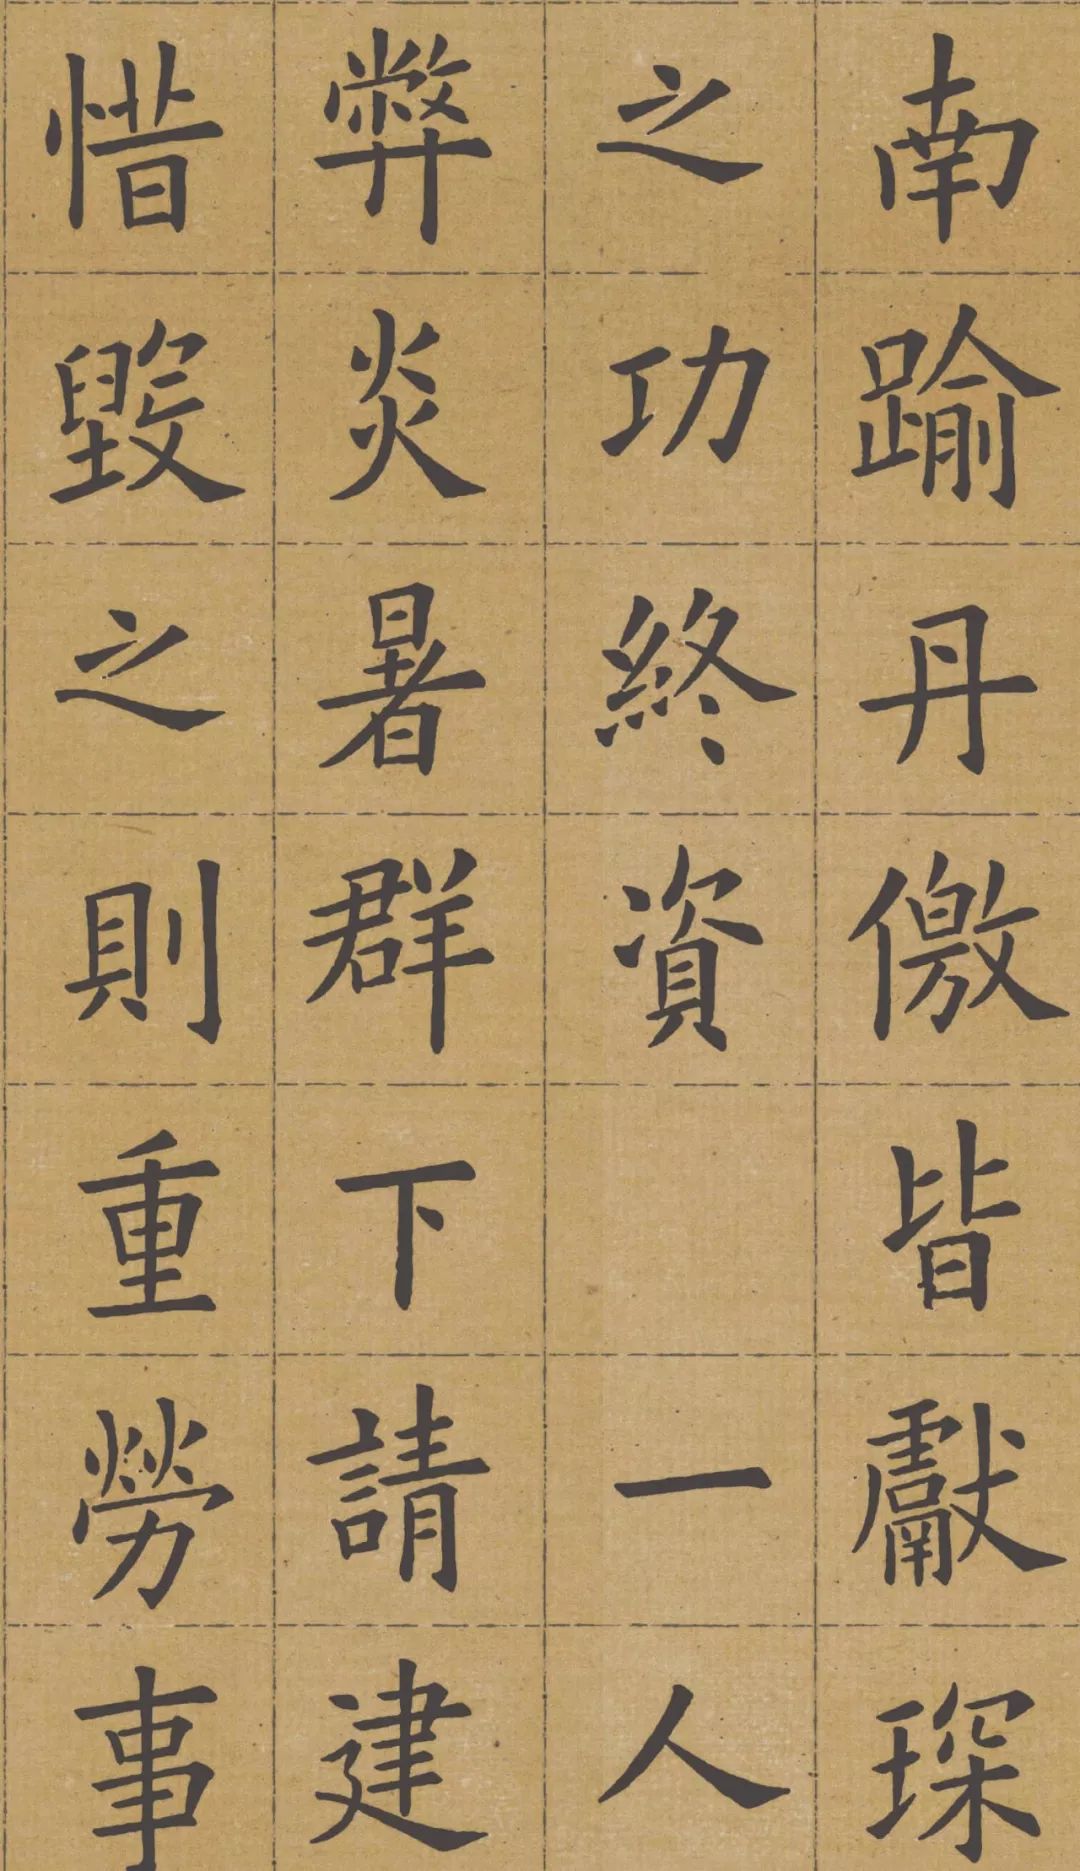 南踰丹儌皆獻琛
之功終資 一人
弊炎暑群下請建
惜毀之則重勞事